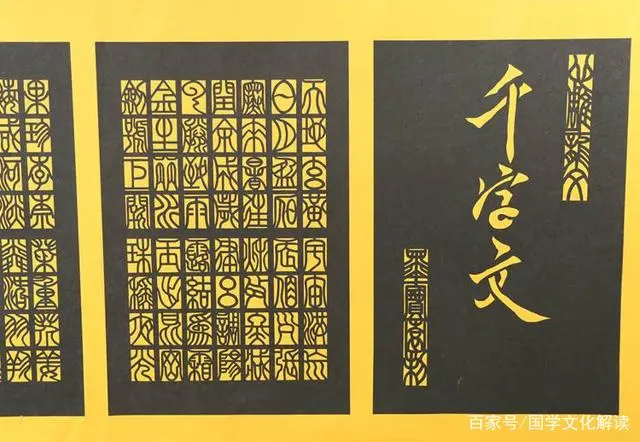 千字文
天地玄黃宇宙洪荒
日月盈昃辰宿列張
寒來暑往秋收冬藏
閏餘成歲律呂調陽
雲騰致雨露結為霜
金生麗水玉出崑岡
劍號巨闕珠稱夜光
果珍李柰菜重芥薑
海鹹河淡鱗潛羽翔
百家号/国学文化解读